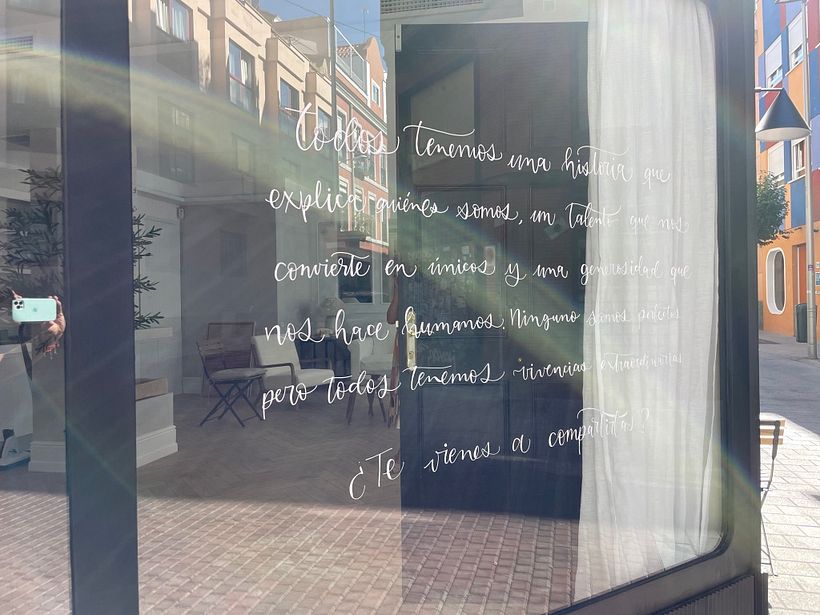 todos tenemos una historia que
explica quiénes somos, un talento que nos
convierte en únicos y una generosidad que
nos hace humanos. Ninguno somos perfectos
pero todos tenemos vivencias extraordinarias
¿Te vienes a compartirlas?